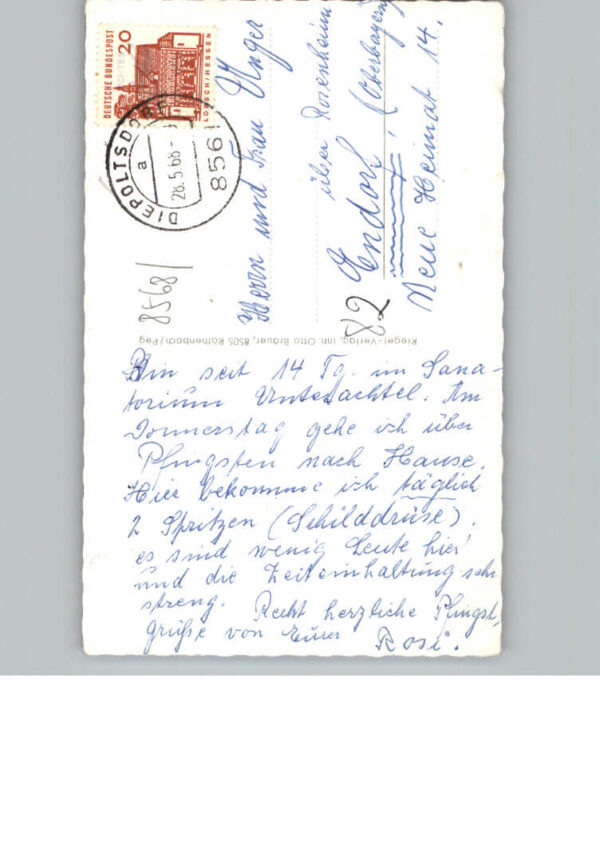 DEUTSCHE BUNDESPOST
20
LORSCH/HESSEN
DIEPOLTSDORF
a
28.5.68
8561
8568/
Herrn und Frau Unger
über Rosenheim
82
Endorf, (Oberbayern
Neue Heimat 14.
Riegel-Verlag, Inh. Otto Bräuer, 8505 Röthenbach/Peg
Bin seit 14 Tg. im Sana-
torium Unterachtel. Am
Donnerstag gehe ich über
Pfingsten nach Hause.
Hier bekomme ich täglich
2 Spritzen (Schilddrüse).
es sind wenig Leute hier
und die Zeiteinhaltung sehr
streng. Recht herzliche Pfingst,
grüße von Eurer Rosi.